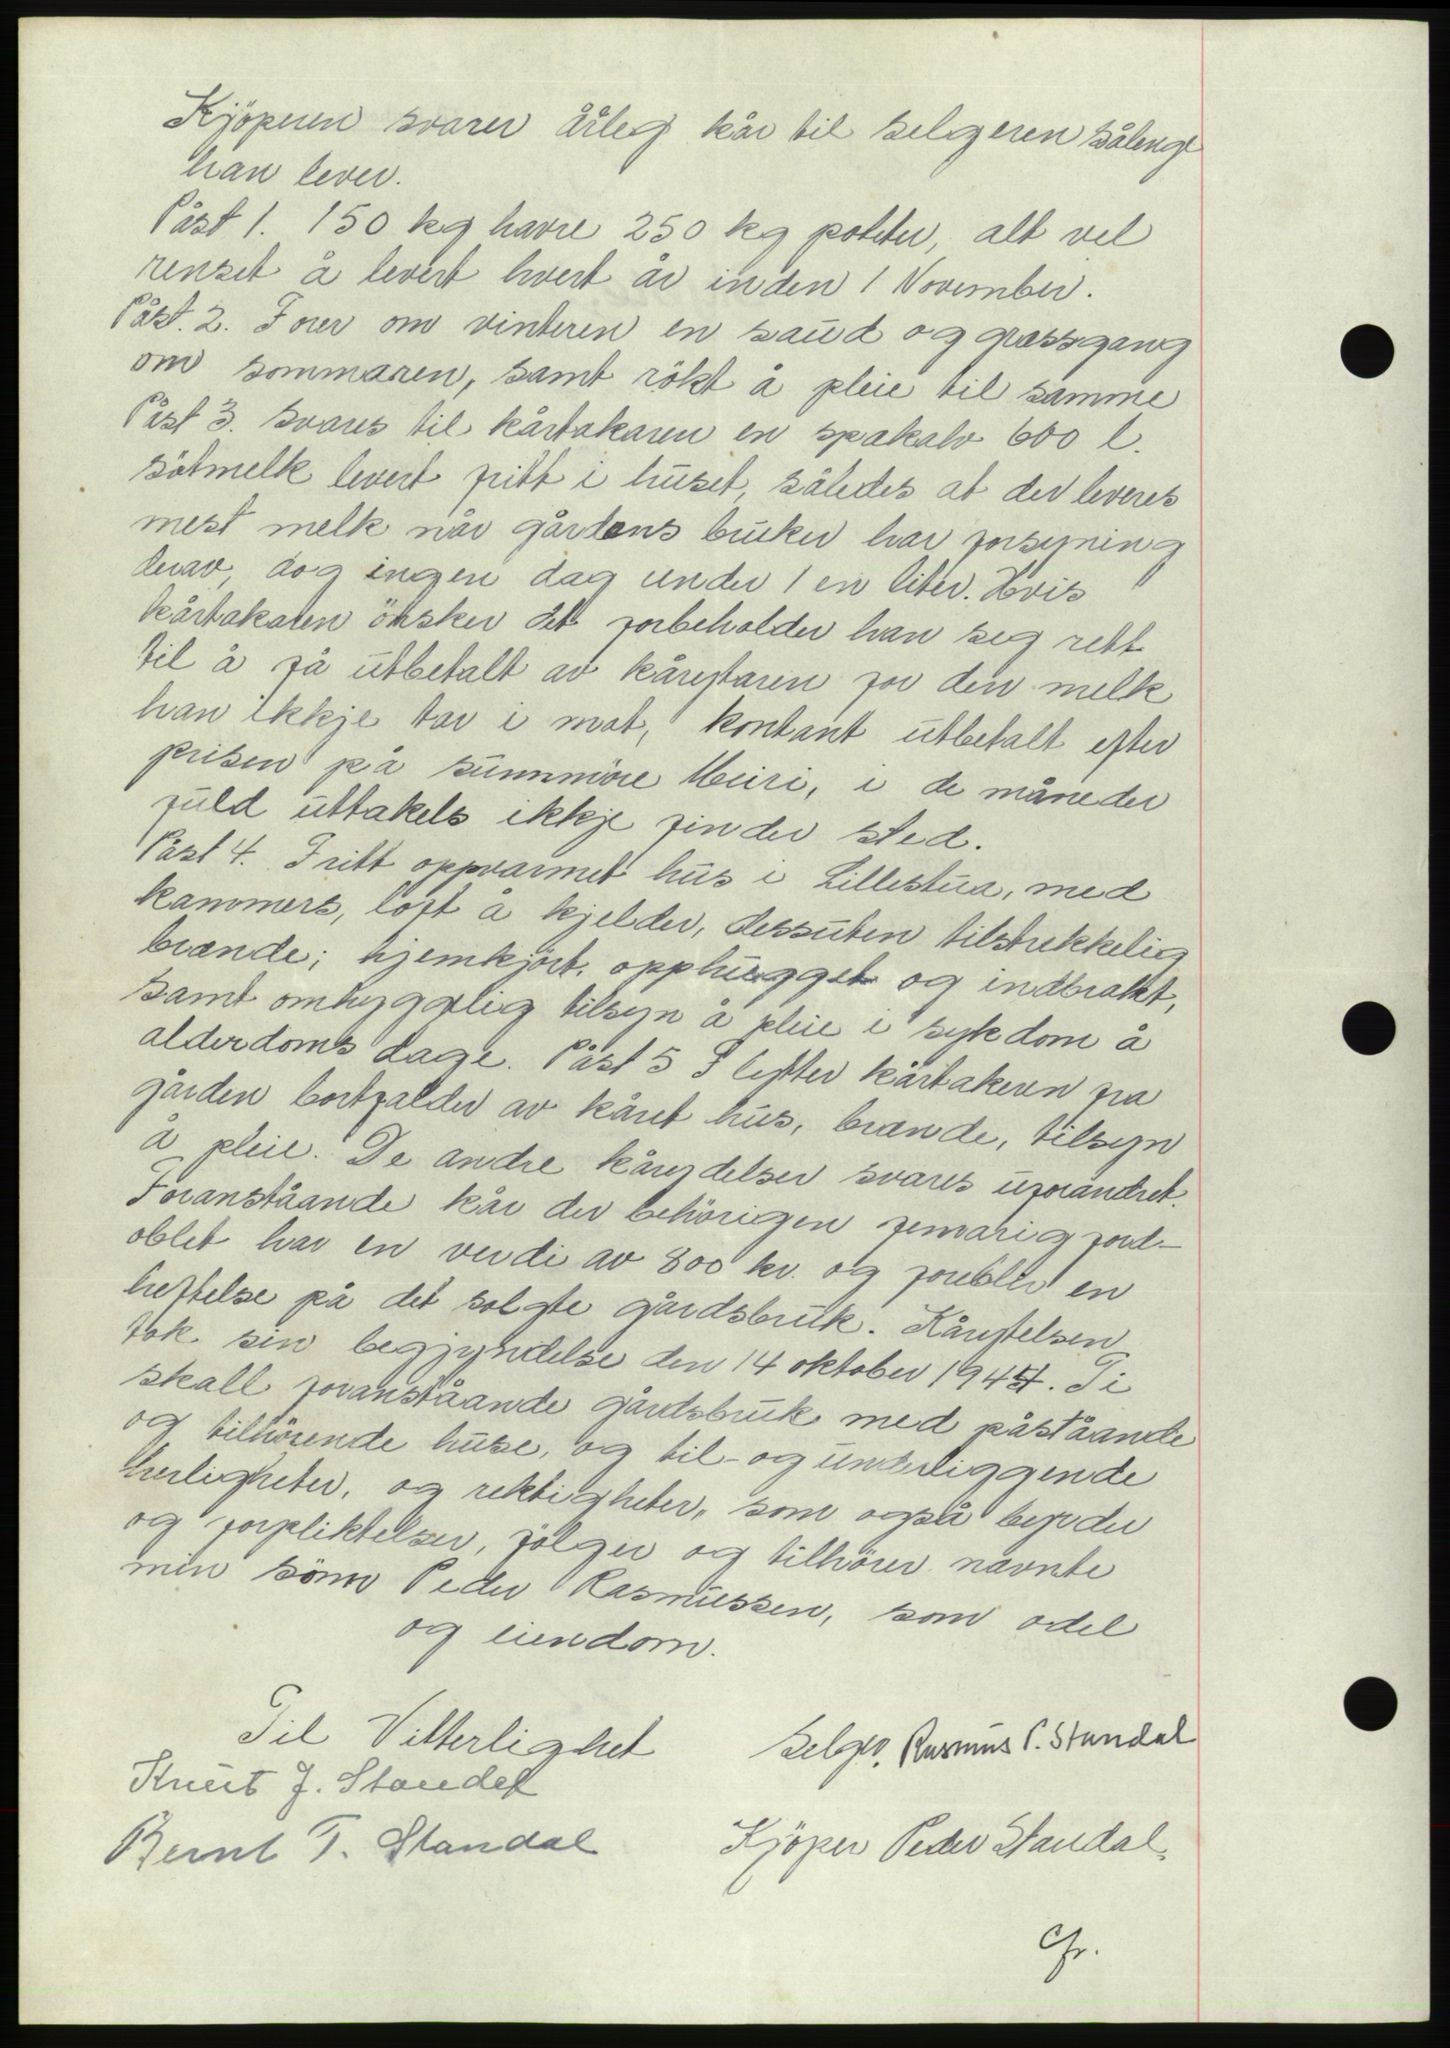 Kjöperen svarer årleg kår til selgeren sålenge
han lever.
Påst 1. 150 kg havre 250 kg poteter, alt vel
renset å levert hvert år inden 1 November.
Påst. 2. Forer om vinteren en saud og græssgang
om sommaren, samt rökt å pleie til samme
Påst 3. Svares til kårtakaren en spækalv 600 l.
sötmelk levert fritt i huset, således at der leveres
mest melk når gårdens bruker har forsyning
derav, dog ingen dag under 1 en liter. Hvis
kårtakaren önsker det forbeholder han seg rett
til å få utbetalt av kåreytaren for den melk
han ikkje tar i mot, kontant utbetalt efter
prisen på sunnmöre Meiri, i de måneder
fuld uttakels ikkje finder sted.
Påst 4. Fritt oppvarmet hus i Lillestua, med
kammers, loft å kjelder, dessuten tilstrekkelig
brænde; hjemkjört, opphugget og indbrakt,
samt omhyggelig tilsyn å pleie i sykdom å
alderdoms dage. Påst 5 Flytter kårtakeren fra
gården bortfalder av kåret hus, brænde, tilsyn
å pleie. De andre kårydelser svares uforandret.
Foranståande kår der behörigen femårig ford-
oblet har en verdi av 800 kr. og forebler en
heftelse på det solgte gårdsbruk. Kårytelsen
tok sin begjyndelse den 14 oktober 1944. Ti
skall foranståande gårdsbruk med påståande
og tilhörende huse, og til- og underliggende
herligheter, og rektigheter, som også byrder
og forpliktelser, fölger og tilhörer nævnte
min sönn Peder Rasmussen, som odel
og eiendom.
Til Vitterlighet
Selger. Rasmus P. Standal
Knut J. Standal
Bernt T. Standal
Kjöper Peder Standal.